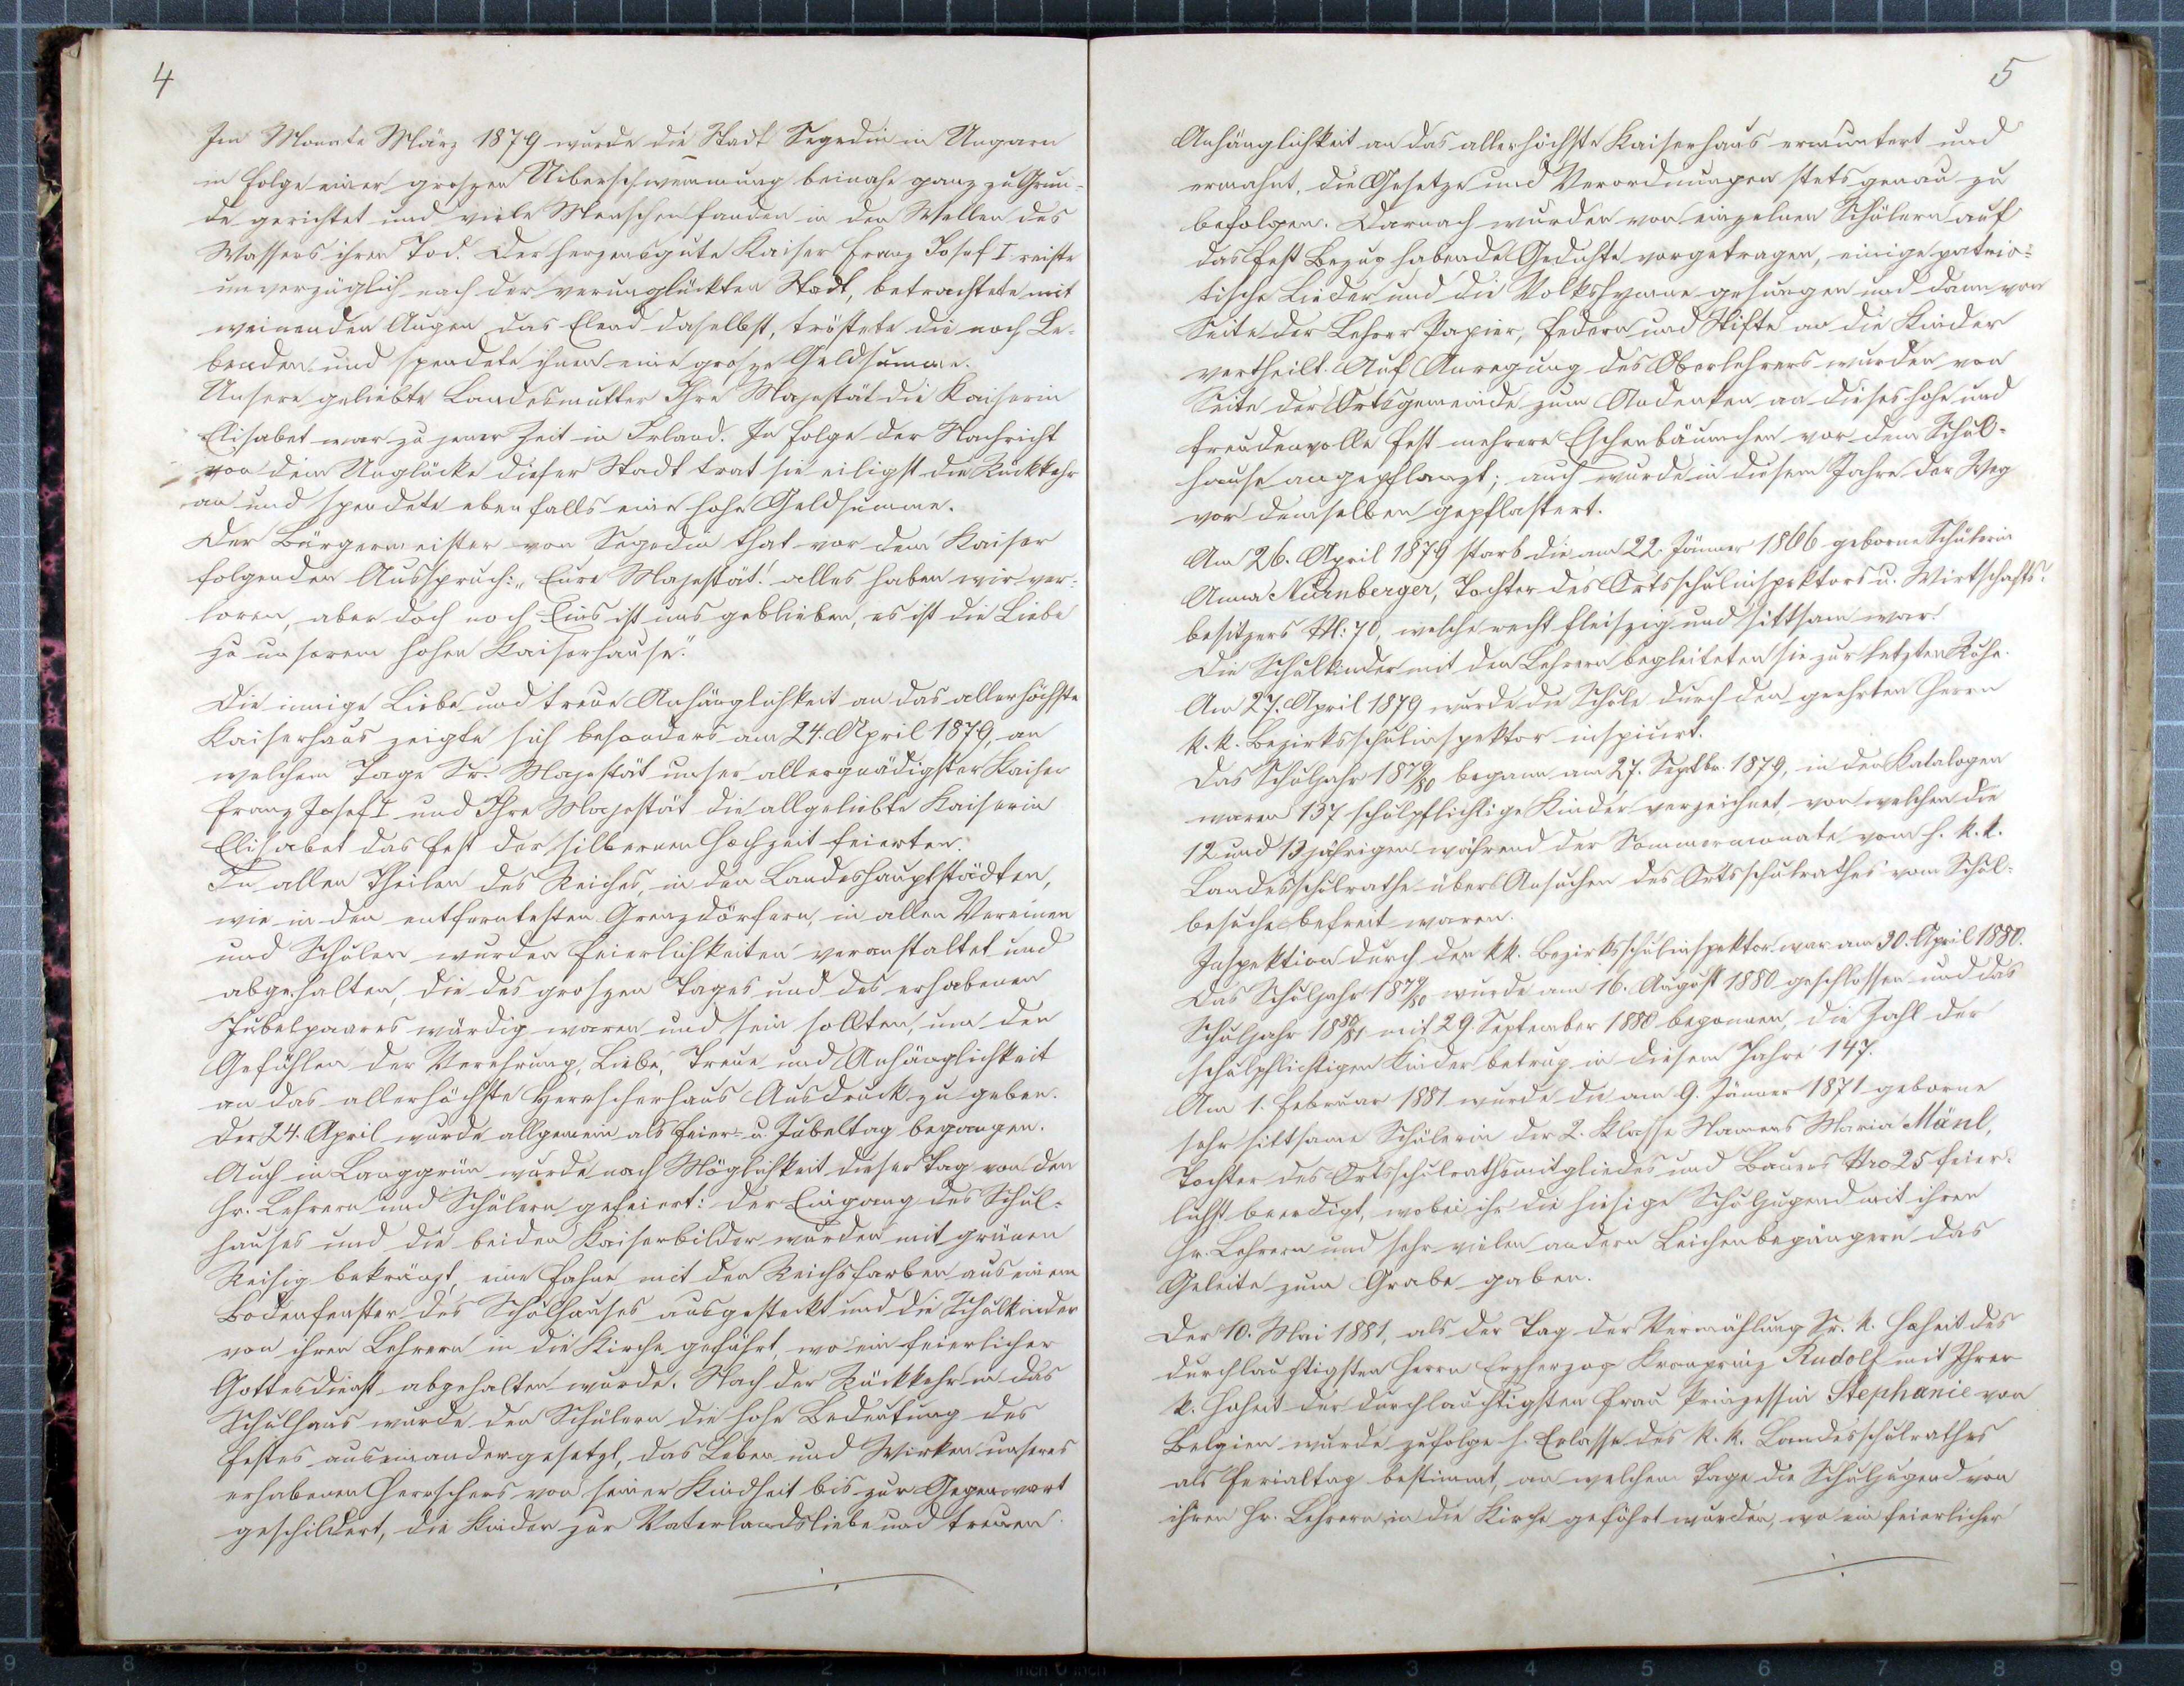 4
Im Monate März 1879 wurde die Stadt Segedin in Ungarn
in Folge einer groszen Uiberschwemmung beinahe ganz zu Grun-
de gerichtet und viele Menschen fanden in den Wellen des
Wassers ihren Tod. Der herzensgute Kaiser Franz Josef I reiste
unverzüglich nach der verunglückten Stadt, betrachtete mit
weinenden Augen das Elend daselbst, tröstete die noch Le-
benden und spendete ihnen eine grosze Geldsumme.
Unsere geliebte Landesmutter Ihre Majestät die Kaiserin
Elisabet war zu jener Zeit in Irland. In Folge der Nachricht
von dem Unglücke dieser Stadt trat sie eiligst die Rückkehr
an und spendete ebenfalls eine hohe Geldsumme.
Der Bürgermeister von Segedin that vor dem Kaiser
folgenden Ausspruch: „Eure Majestät! alles haben wir ver-
loren, aber doch noch Eins ist uns geblieben, es ist die Liebe
zu unserem hohen Kaiserhause."
Die innige Liebe und treue Anhänglichkeit an das allerhöchste
Kaiserhaus zeigte sich besonders am 24. April 1879, an
welchem Tage Sr. Majestät unser allergnädigster Kaiser
Franz Josef I und Ihre Majestät die allgeliebte Kaiserin
Elisabet das Fest der silbernen Hochzeit feierten.
In allen Theilen des Reiches, in den Landeshauptstädten,
wie in den entferntesten Grenzdörfern, in allen Vereinen
und Schulen wurden Feierlichkeiten veranstaltet und
abgehalten, die des groszen Tages und des erhabenen
Jubelpaares würdig waren und sein sollten, um den
Gefühlen der Verehrung, Liebe, Treue und Anhänglichkeit
an das allerhöchste Herrscherhaus Ausdruck zu geben.
Der 24. April wurde allgemein als Feier- u. Jubeltag begangen.
Auch in Langgrün wurde nach Möglichkeit dieser Tag von den
Hr. Lehrern und Schülern gefeiert: der Eingang des Schul-
hauses und die beiden Kaiserbilder wurden mit grünen
Reisig bekränzt, eine Fahne mit den Reichsfarben aus einem
Bodenfenster des Schulhauses ausgesteckt und die Schulkinder
von ihren Lehrern in die Kirche geführt, wo ein feierlicher
Gottesdienst abgehalten wurde. Nach der Rückkehr in das
Schulhaus wurde den Schülern die hohe Bedeutung des
Festes auseinandergesetzt, das Leben und Wirken unseres
erhabenen Herrschers von seiner Kindheit bis zur Gegenwart
geschildert, die Kinder zur Vaterlandsliebe und treuen
5
Anhänglichkeit an das allerhöchste Kaiserhaus ermuntert und
ermahnt, die Gesetze und Verordnungen stets genau zu
befolgen. Darnach wurden von einzelnen Schülern auf
das Fest Bezug habende Gedichte vorgetragen, einige patrio-
tische Lieder und die Volkshymne gesungen und dann von
Seite der Lehrer Papier, Federn und Stifte an die Kinder
vertheilt. Auf Anregung des Oberlehrers wurden von
Seite der Ortsgemeinde zum Andenken an dieses hohe und
freudenvolle Fest mehrere Eschenbäumchen vor dem Schul-
hause angepflanzt; auch wurde in diesem Jahre der Weg
vor demselben gepflastert.
Am 26. April 1879 starb die am 22. Jänner 1866 geborne Schülerin
Anna Nürnberger, Tochter des Ortsschulinspektors u. Wirtschafts-
besitzers N: 70, welche recht fleiszig und sittsam war.
Die Schulkinder mit den Lehrern begleiteten sie zur letzten Ruhe.
Am 27. April 1879 wurde die Schule durch den geehrten Herrn
k. k. Bezirksschulinspektor inspicirt.
Das Schuljahr 1879/80 begann am 27. Septbr. 1879, in den Katalogen
waren 137 schulpflichtige Kinder verzeichnet, von welchen die
12 und 13 jährigen während der Sommermonate vom h. k. k.
Landesschulrathe übers Ansuchen des Ortsschulrathes vom Schul-
besuche befreit waren.
Inspektion durch den kk. Bezirksschulinspektor war am 30. April 1880.
Das Schuljahr 1879/80 wurde am 16. August 1880 geschlossen und das
Schuljahr 1880/81 mit 29. September 1880 begonnen, die Zahl der
schulpflichtigen Kinder betrug in diesem Jahre 147.
Am 1. Februar 1881 wurde die am 9. Jänner 1871 geborne
sehr sittsame Schülerin der 2. Klasse Namens Maria Mänl,
Tochter des Ortsschulrathsmitgliedes und Bauers Nro 25 feier-
lichst beerdigt, wobei ihr die hiesige Schuljugend mit ihren
Hr. Lehrern und sehr vielen andern Leichenbegängern das
Geleite zum Grabe gaben.
Der 10. Mai 1881, als der Tag der Vermählung Sr. k. Hoheit des
durchlauchtigsten Herrn Erzherzog Kronprinz Rudolf mit Ihrer
k. Hoheit der durchlauchtigsten Frau Prinzessin Stephanie von
Belgien wurde zufolge h. Erlasse des k. k. Landesschulrathes
als Ferialtag bestimmt, an welchem Tage die Schuljugend von
ihren Hr. Lehrern in die Kirche geführt wurden, wo ein feierlicher